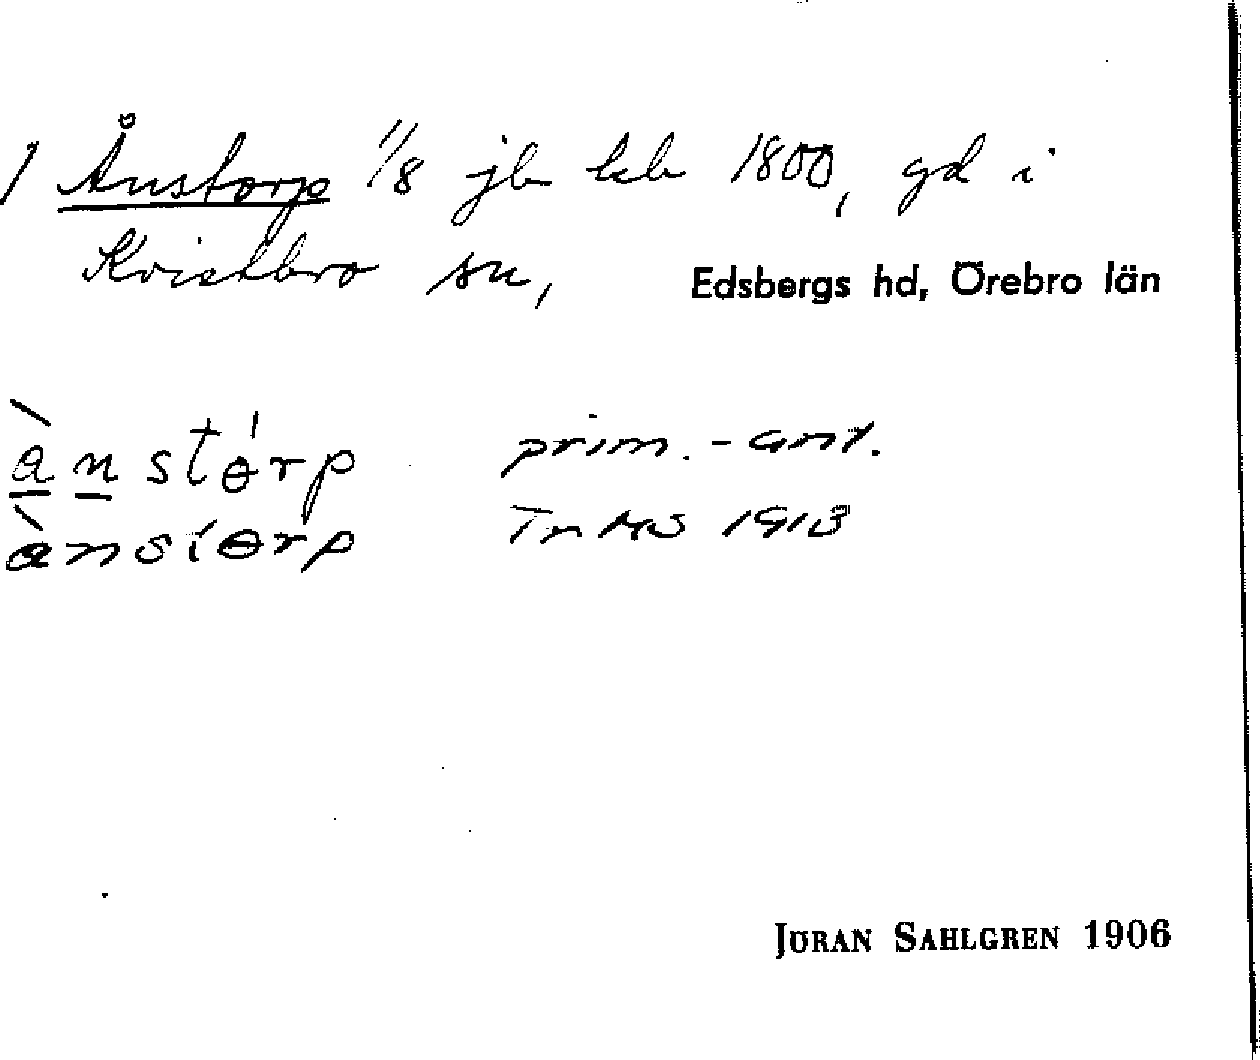 1 Ånstorp 1/8 jb kb 1800, gd i
Kvistbro sn, Edsbergs hd, Örebro län
ànstɵ́rp prim.-ant.
ànstɵrp TnMS 1913
JÖRAN SAHLGREN 1906